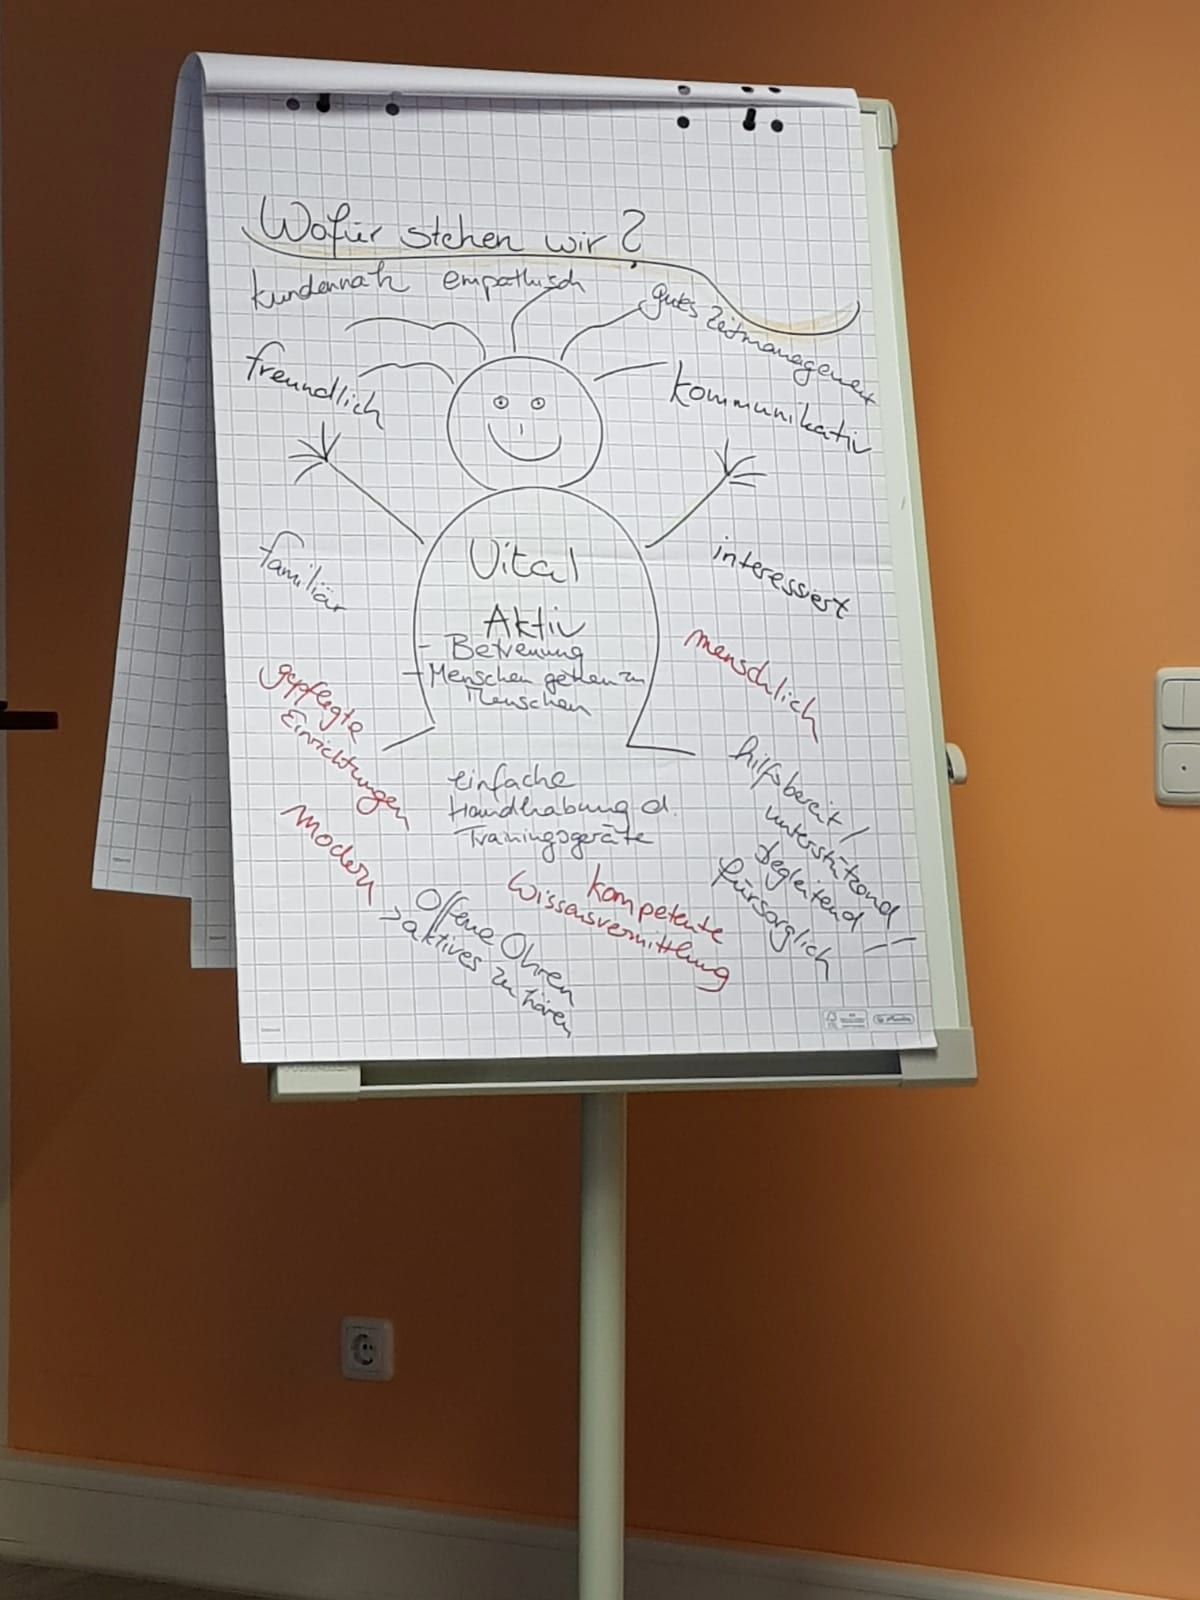 Wofür stehen wir?
kundennah
empathisch
gutes Zeitmanagement
freundlich
kommunikativ
familiär
Vital
Aktiv
- Betreuung
- Menschen gehen zu
Menschen
interessiert
menschlich
gepflegte
Einrichtungen
Modern
einfache
Handhabung d.
Trainingsgeräte
hilfsbereit /
unterstützend
begleitend
fürsorglich
kompetente
Wissensvermittlung
Offene Ohren
> aktives zu hören